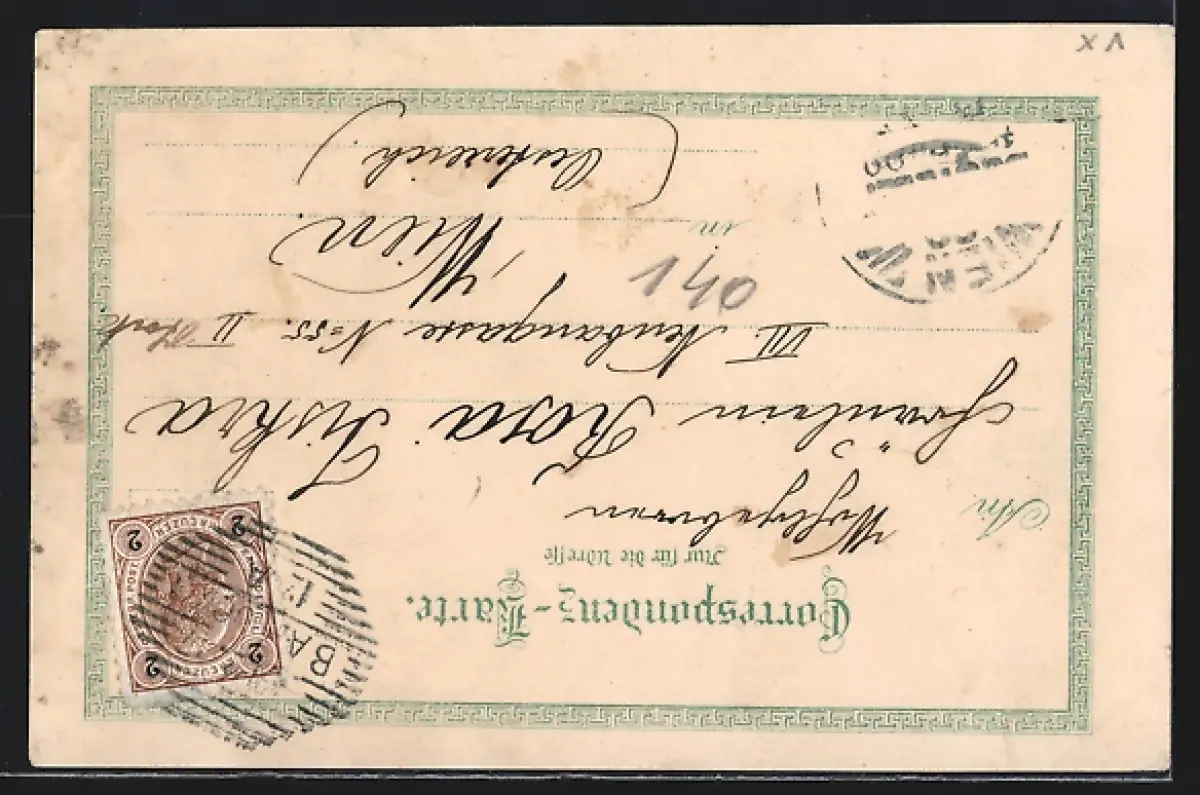 Correspondenz-Karte.
Nur für die Adresse
Wohlgeboren
An Fräulein Rosa Fiskra
VII. Neubaugasse N=55. II Stock
in Wien
(Oesterreich)
140
WIEN
2 2
KREUZER
2 2
BA